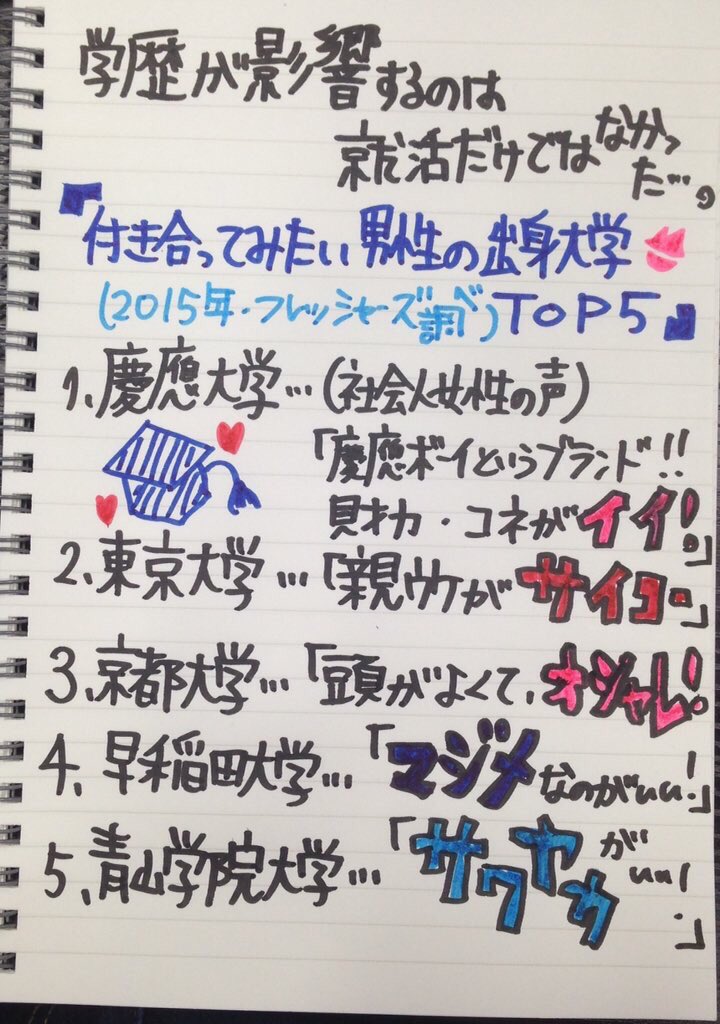 学歴が影響するのは
就活だけではなかった…。
『付き合ってみたい男性の出身大学
(2015年・フレッシャーズ調べ)TOP5』
1、慶應大学…(社会人女性の声)
「慶應ボーイというブランド!!
財力・コネがイイ!」
2、東京大学…「親ウケがサイコー」
3、京都大学…「頭がよくて、オシャレ!
4、早稲田大学…「マジメなのがいい!」
5、青山学院大学…「サワヤカがいい!」